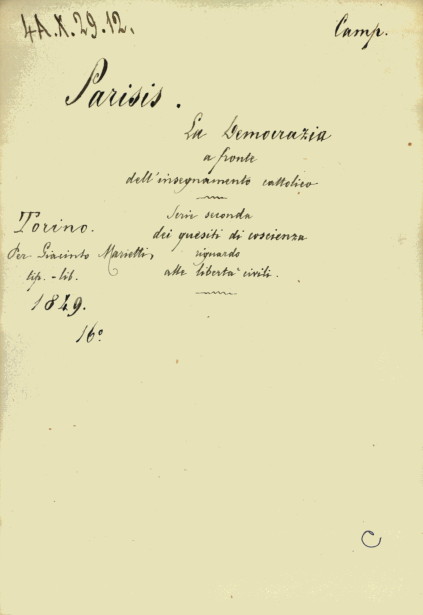 4A.X.29.12.
Camp.
Parisis.
La Democrazia
a fronte
dell'insegnamento cattolico
Serie seconda
dei quesiti di coscienza
riguardo
alle libertà civili.
Torino.
Per Giacinto Marietti,
tip.-lib.
1849.
16º
C